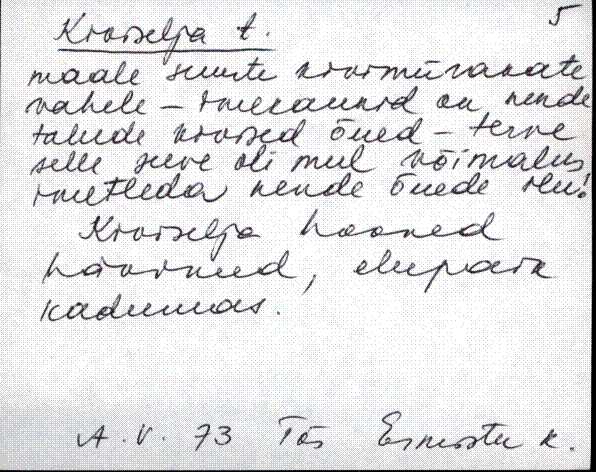 5
Kiviselja t.
maale suurte kivimürakate
vahele – imekaunid on nende
talude kivised õued – terve
selle suve oli mul võimalus
imetleda nende õuede ilu!
Kiviselja hooned
hävinud, elupaik
kadumas.
A. V. 73 Tõs Ermistu k.